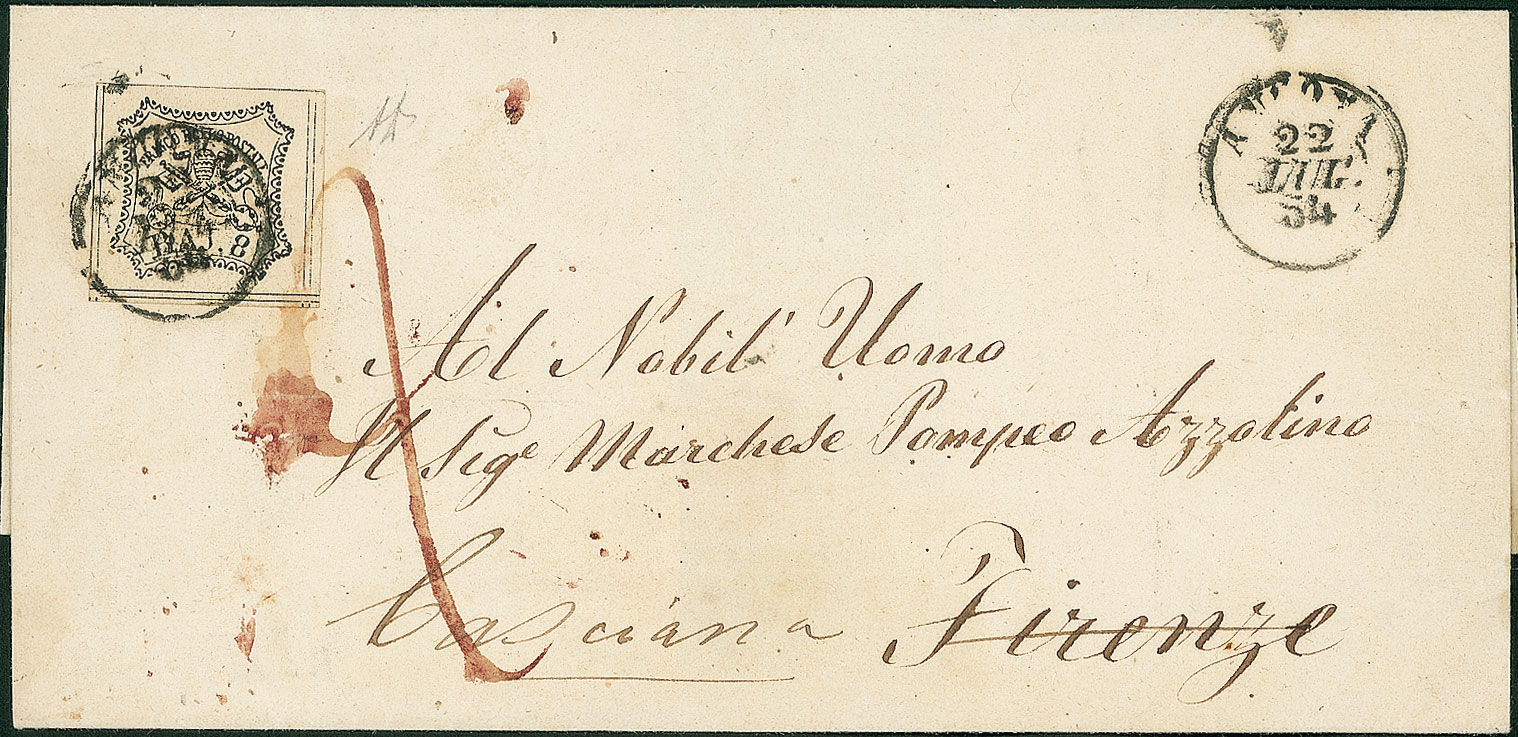 FRANCO BOLLO POSTALE
BAJ. 8
ANCONA
22
LUG.
54
Al Nobil' Uomo
Il Sigᵉ Marchese Pompeo Azzolino
Casciana Firenze